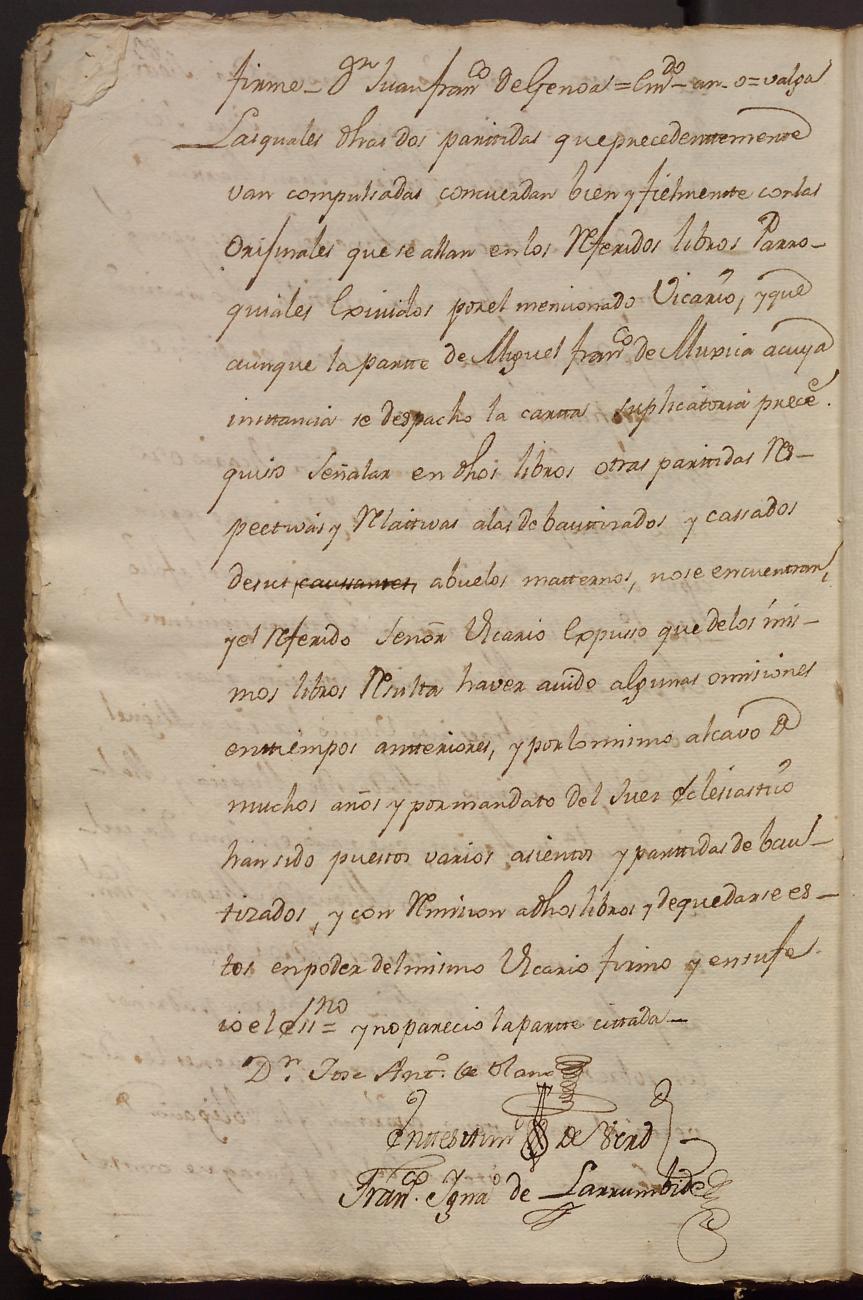 firme_ Dn Juan franco de Genoa = Emdo_ an_ o = valga
Las quales dhas dos parttidas que precedenttementte
van compulsadas concuerdan bien y fielmentte con las
Orijinales que se allan en los Referidos libros Parro_
quiales Exividos por el mencionado Vicario, y que
aunque la partte de Miguel franco de Muxica a cuya
insttancia se despacho la cartta suplicatoria precete.
quiso señalar en dhos libros otras parttidas Res_
pectivas y Relattivas a las de bauttizados y cassados
de sus caussantes, abuelos matternos, no se encuentran,
y el Referido Señor Vicario Expusso que de los mis_
mos libros Resulta haver avido algunas omisiones
en ttiempos antteriores, y por lo mismo al cavo de
muchos años y por mandato del Juez Eclesiastico
han sido puestos varios asientos y parttidas de bau_
tizados, y con Remision a dhos libros y de quedarse es_
tos en poder del mismo Vicario firmo y en su fe
io el essno = y no parecio la partte cittada_
Dn. Jose Anto. de Olano
En ttestimo de Verd
Franco. Ignao de Larrumbide